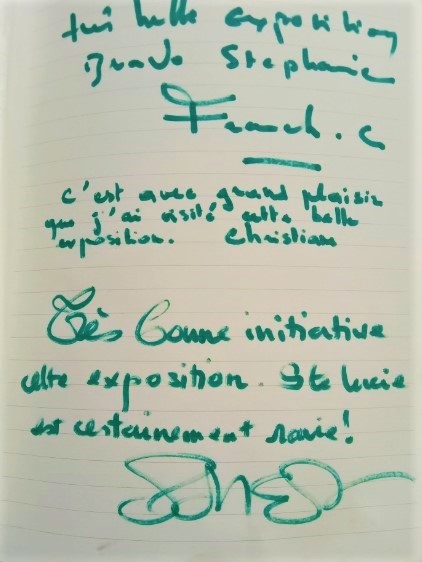 très belle exposition
Bravo Stephanie
Franck. C
c'est avec grand plaisir
que j'ai visité cette belle
exposition. Christian
Très bonne initiative
cette exposition. Ste Lucie
est certainement ravie!